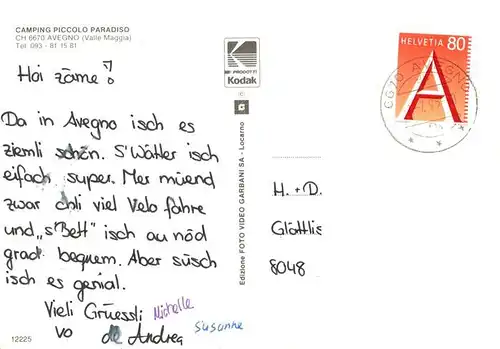 CAMPING PICCOLO PARADISO
CH 6670 AVEGNO (Valle Maggia)
Tel 093 - 81 15 81
Hoi zäme!
Da in Avegno isch es
ziemli schön. S'Wätter isch
eifach super. Mer müend
zwar chli viel Velo fahre
und „s'Bett" isch au nöd
grad bequem. Aber süsch
isch es genial.
Vieli Grüessli Michelle
vo de Andrea Susanne
12225
PRODOTTI
Kodak
©
Edizione FOTO VIDEO GARBANI SA - Locarno
HELVETIA 80
A
6670 AVEGNO
H. + D.
Glättlis
8048